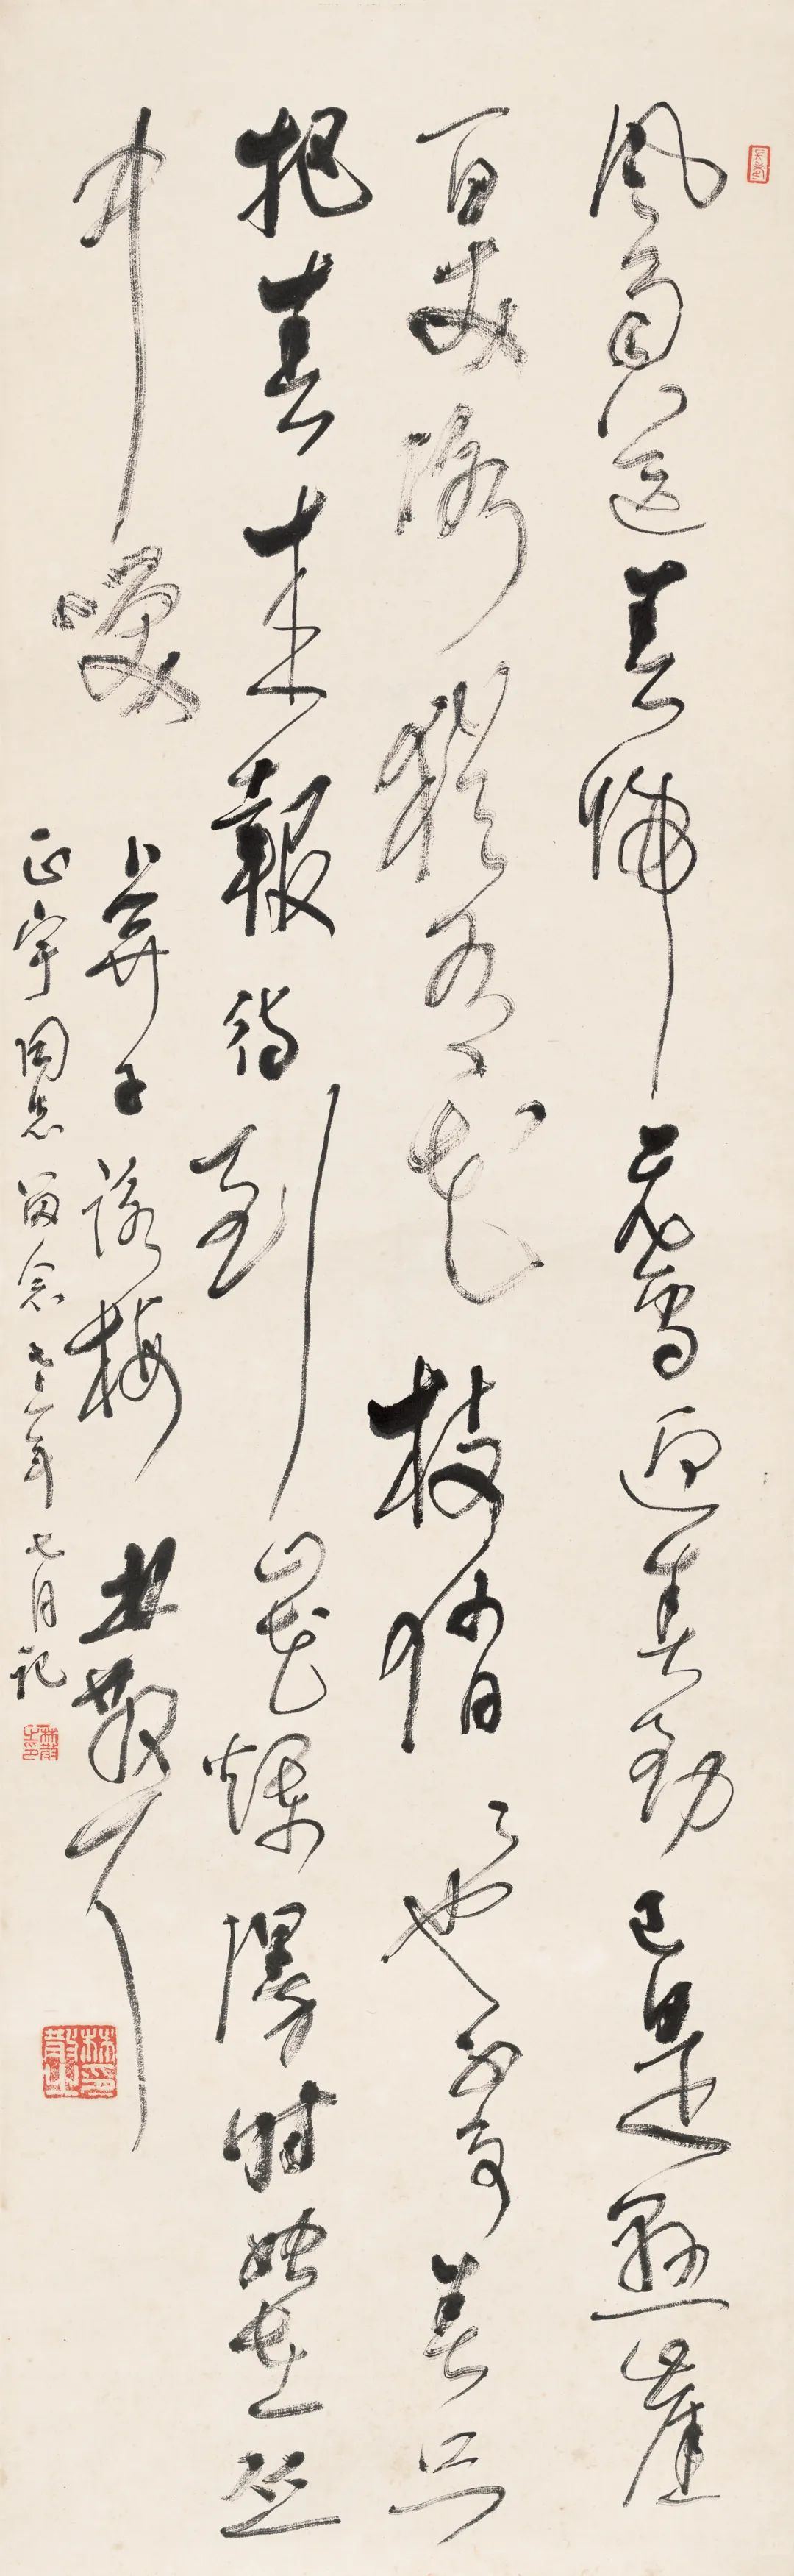 风雨送春归飞雪迎春到已是悬崖
百丈冰犹有花枝俏俏也不争春只
把春来报待到山花烂漫时她在丛
中笑
卜算子咏梅 林散耳
正宇同志留念 七三年七月记